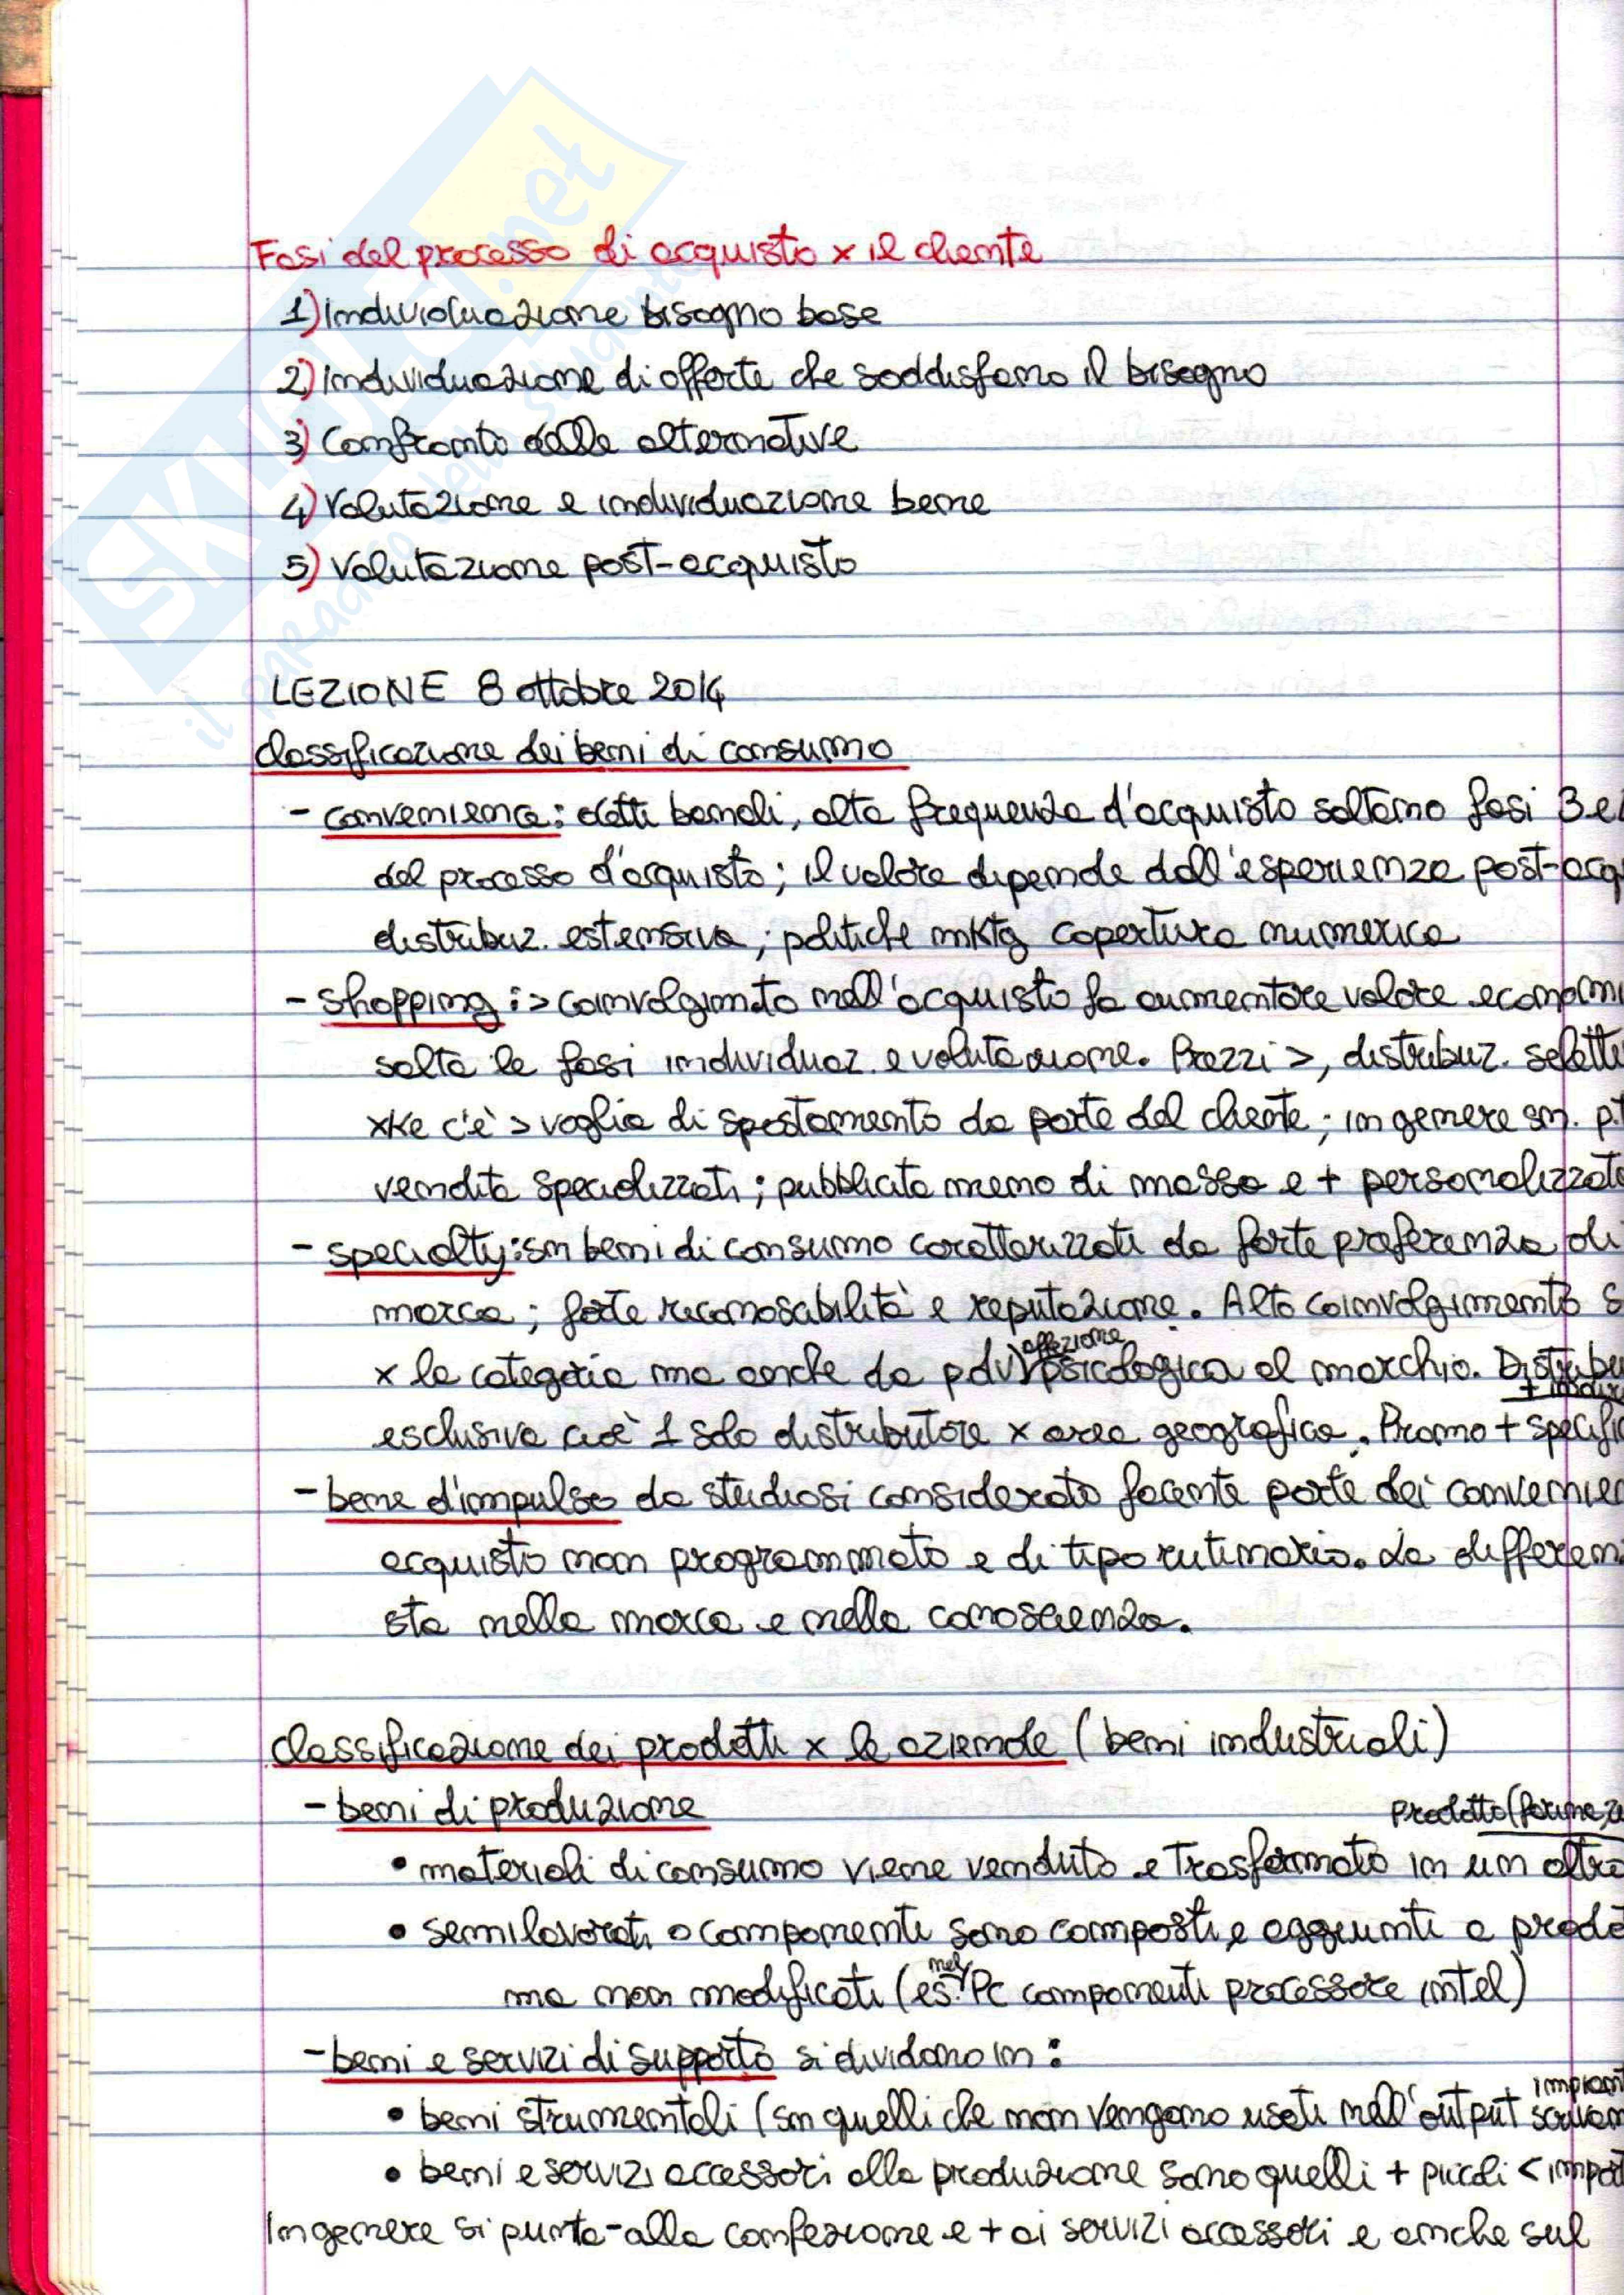 Fasi del processo di acquisto x il cliente
1) individuazione bisogno base
2) individuazione di offerte che soddisfano il bisogno
3) Confronto delle alternative
4) Valutazione e individuazione bene
5) Valutazione post-acquisto
LEZIONE 8 ottobre 2014
classificazione dei beni di consumo
- convenience: detti banali, alta frequenza d'acquisto saltano fasi 3 e
del processo d'acquisto; il valore dipende dall'esperienza post-acq
distribuz. estensiva; politiche mktg copertura numerica
- shopping: > coinvolgimto nell'acquisto fa aumentare valore economi
salta le fasi individuaz. e valutazione. Prezzi >, distribuz. seletti
xke c'è > voglia di spostamento da parte del cliente; in genere sn. p.t
vendita specializzati; pubblicità meno di massa e + personalizzata
- specialty: sn beni di consumo caratterizzati da forte preferenza di
marca; forte riconosabilità e reputazione. Alto coinvolgimento s
affezione
x la categoria ma anche da pdv psicologica al marchio. Distribu
esclusiva cioè 1 solo distributore x area geografica. Promo + specific
- bene d'impulso da studiosi considerato facente parte dei convenien
acquisto non programmato e di tipo rutinario. La differen
sta nella marca e nella conoscienza.
classificazione dei prodotti x le aziende (beni industriali)
- beni di produzione
prodotto (farine, zu
• materiali di consumo viene venduto e trasformato in un altro
• semilavorati o componenti sono composti e aggiunti a prodo
nel
ma non modificati (es. PC componenti processore intel)
- beni e servizi di supporto si dividono in:
impiant
• beni strumentali (sn quelli che non vengono usati nell'output scrivan
• beni e servizi accessori alla produzione sono quelli + piccoli < import
In genere si punta alla confezione e + ai servizi accessori e anche sul
SKUOLA.net
il paradiso dello studente